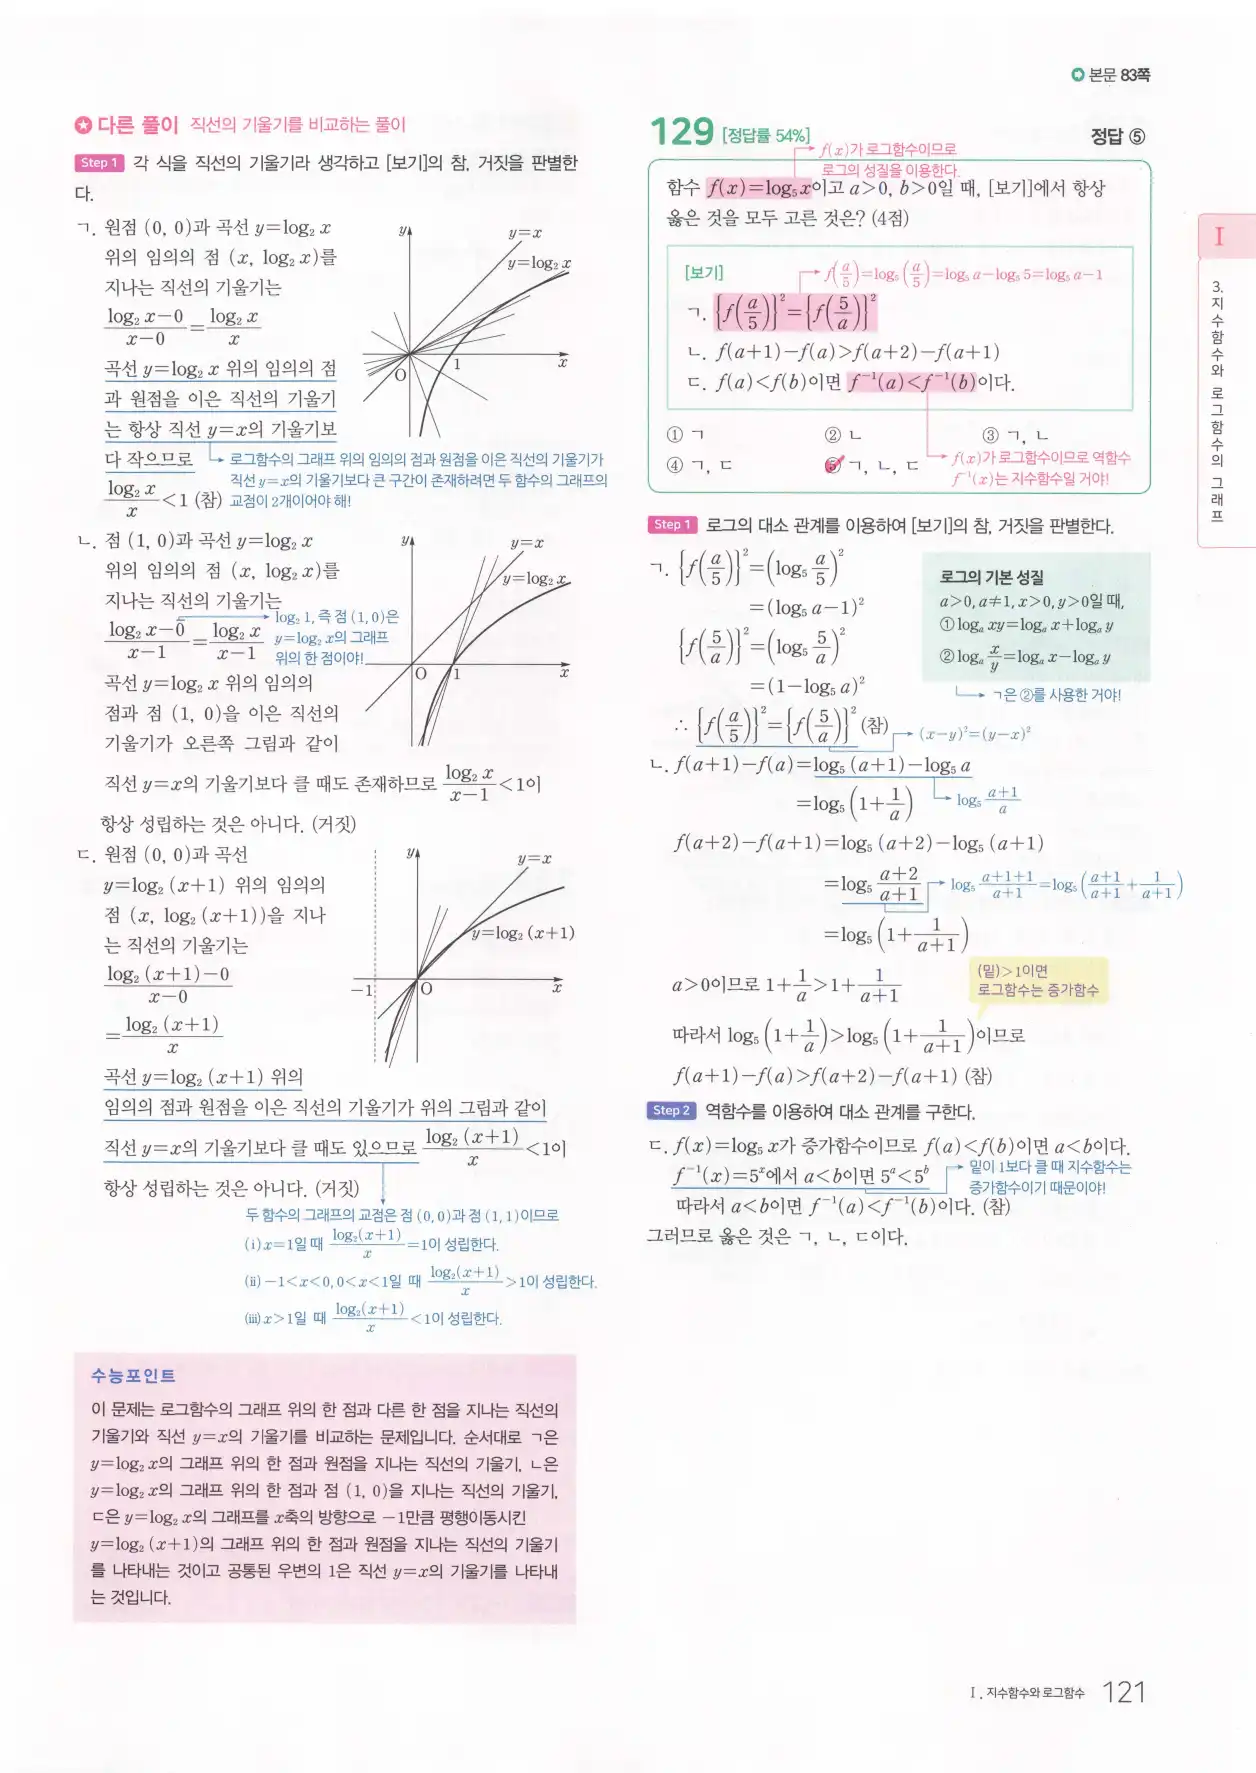 본문 83쪽
다른 풀이 직선의 기울기를 비교하는 풀이
Step 1 각 식을 직선의 기울기라 생각하고 [보기]의 참, 거짓을 판별한
다.
ㄱ. 원점 (0, 0)과 곡선 y=log₂ x
위의 임의의 점 (x, log₂ x)를
지나는 직선의 기울기는
(log₂ x−0)/(x−0) = (log₂ x)/x
곡선 y=log₂ x 위의 임의의 점
과 원점을 이은 직선의 기울기
는 항상 직선 y=x의 기울기보
다 작으므로
(log₂ x)/x <1 (참)
로그함수의 그래프 위의 임의의 점과 원점을 이은 직선의 기울기가
직선 y=x의 기울기보다 큰 구간이 존재하려면 두 함수의 그래프의
교점이 2개이어야 해!
y y=x
y=log₂ x
O 1 x
ㄴ. 점 (1, 0)과 곡선 y=log₂ x
위의 임의의 점 (x, log₂ x)를
지나는 직선의 기울기는
(log₂ x−0)/(x−1) = (log₂ x)/(x−1)
log₂ 1, 즉 점 (1, 0)은
y=log₂ x의 그래프
위의 한 점이야!
곡선 y=log₂ x 위의 임의의
점과 점 (1, 0)을 이은 직선의
기울기가 오른쪽 그림과 같이
직선 y=x의 기울기보다 클 때도 존재하므로 (log₂ x)/(x−1) <1이
항상 성립하는 것은 아니다. (거짓)
y y=x
y=log₂ x
O 1 x
ㄷ. 원점 (0, 0)과 곡선
y=log₂ (x+1) 위의 임의의
점 (x, log₂ (x+1))을 지나
는 직선의 기울기는
(log₂ (x+1)−0)/(x−0)
= (log₂ (x+1))/x
곡선 y=log₂ (x+1) 위의
임의의 점과 원점을 이은 직선의 기울기가 위의 그림과 같이
직선 y=x의 기울기보다 클 때도 있으므로 (log₂ (x+1))/x <1이
항상 성립하는 것은 아니다. (거짓)
y y=x
y=log₂ (x+1)
−1 O x
두 함수의 그래프의 교점은 점 (0, 0)과 점 (1, 1)이므로
(i) x=1일 때 (log₂(x+1))/x =1이 성립한다.
(ii) −1<x<0, 0<x<1일 때 (log₂(x+1))/x >1이 성립한다.
(iii) x>1일 때 (log₂(x+1))/x <1이 성립한다.
수능포인트
이 문제는 로그함수의 그래프 위의 한 점과 다른 한 점을 지나는 직선의
기울기와 직선 y=x의 기울기를 비교하는 문제입니다. 순서대로 ㄱ은
y=log₂ x의 그래프 위의 한 점과 원점을 지나는 직선의 기울기, ㄴ은
y=log₂ x의 그래프 위의 한 점과 점 (1, 0)을 지나는 직선의 기울기,
ㄷ은 y=log₂ x의 그래프를 x축의 방향으로 −1만큼 평행이동시킨
y=log₂ (x+1)의 그래프 위의 한 점과 원점을 지나는 직선의 기울기
를 나타내는 것이고 공통된 우변의 1은 직선 y=x의 기울기를 나타내
는 것입니다.
129 [정답률 54%] 정답 ⑤
f(x)가 로그함수이므로
로그의 성질을 이용한다.
함수 f(x)=log₅ x이고 a>0, b>0일 때, [보기]에서 항상
옳은 것을 모두 고른 것은? (4점)
[보기]
f(a/5)=log₅ (a/5)=log₅ a−log₅ 5=log₅ a−1
ㄱ. {f(a/5)}²={f(5/a)}²
ㄴ. f(a+1)−f(a)>f(a+2)−f(a+1)
ㄷ. f(a)<f(b)이면 f⁻¹(a)<f⁻¹(b)이다.
① ㄱ ② ㄴ ③ ㄱ, ㄴ
④ ㄱ, ㄷ ⑤ ㄱ, ㄴ, ㄷ
f(x)가 로그함수이므로 역함수
f⁻¹(x)는 지수함수일 거야!
Step 1 로그의 대소 관계를 이용하여 [보기]의 참, 거짓을 판별한다.
ㄱ. {f(a/5)}²=(log₅ a/5)²
=(log₅ a−1)²
{f(5/a)}²=(log₅ 5/a)²
=(1−log₅ a)²
로그의 기본 성질
a>0, a≠1, x>0, y>0일 때,
① logₐ xy=logₐ x+logₐ y
② logₐ x/y=logₐ x−logₐ y
ㄱ은 ②를 사용한 거야!
∴ {f(a/5)}²={f(5/a)}² (참)
(x−y)²=(y−x)²
ㄴ. f(a+1)−f(a)=log₅ (a+1)−log₅ a
=log₅ (1+1/a)
log₅ (a+1)/a
f(a+2)−f(a+1)=log₅ (a+2)−log₅ (a+1)
=log₅ (a+2)/(a+1)
log₅ (a+1+1)/(a+1)=log₅ ((a+1)/(a+1)+1/(a+1))
=log₅ (1+1/(a+1))
a>0이므로 1+1/a>1+1/(a+1)
(밑)>1이면
로그함수는 증가함수
따라서 log₅ (1+1/a)>log₅ (1+1/(a+1))이므로
f(a+1)−f(a)>f(a+2)−f(a+1) (참)
Step 2 역함수를 이용하여 대소 관계를 구한다.
ㄷ. f(x)=log₅ x가 증가함수이므로 f(a)<f(b)이면 a<b이다.
f⁻¹(x)=5ˣ에서 a<b이면 5ᵃ<5ᵇ
밑이 1보다 클 때 지수함수는
증가함수이기 때문이야!
따라서 a<b이면 f⁻¹(a)<f⁻¹(b)이다. (참)
그러므로 옳은 것은 ㄱ, ㄴ, ㄷ이다.
I
3. 지수함수와 로그함수의 그래프
I. 지수함수와 로그함수 121